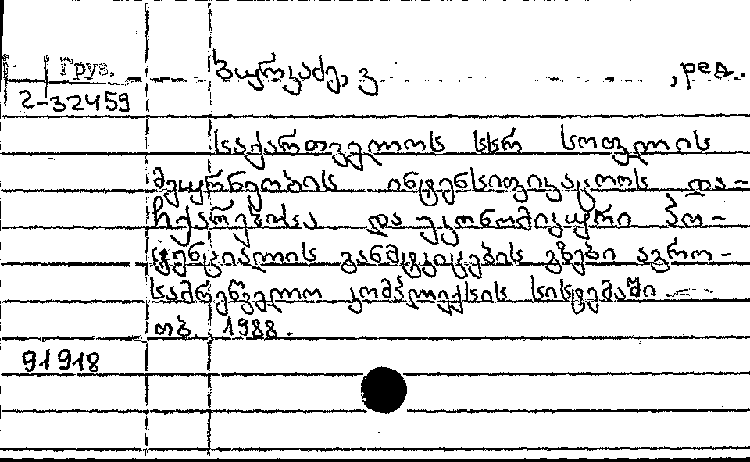 Груз.
2-32459
ბურკაძე, ვ. , ред.
საქართველოს სსრ სოფლის
მეურნეობის ინტენსიფიკაციის და-
ჩქარებისა და ეკონომიკური პო-
ტენციალის განმტკიცების გზები აგრო-
სამრეწველო კომპლექსის სისტემაში
თბ. 1988.
91918